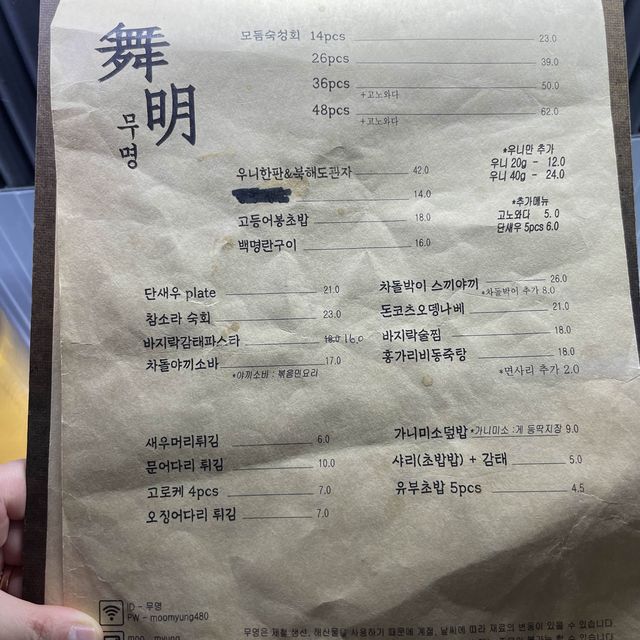 舞明
무명
모듬숙성회 14pcs 23.0
26pcs 39.0
36pcs 50.0
+고노와다
48pcs 62.0
+고노와다
우니한판&북해도관자 42.0
14.0
고등어봉초밥 18.0
백명란구이 16.0
*우니만 추가
우니 20g - 12.0
우니 40g - 24.0
*추가메뉴
고노와다 5.0
단새우 5pcs 6.0
단새우 plate 21.0
참소라 숙회 23.0
바지락감태파스타 18.0 16.0
차돌야끼소바 17.0
*야끼소바 : 볶음면요리
차돌박이 스끼야끼 26.0
*차돌박이 추가 8.0
돈코츠오뎅나베 21.0
바지락술찜 18.0
홍가리비동죽탕 18.0
*면사리 추가 2.0
새우머리튀김 6.0
문어다리 튀김 10.0
고로케 4pcs 7.0
오징어다리 튀김 7.0
가니미소덮밥 *가니미소 :게 등딱지장 9.0
샤리(초밥밥) + 감태 5.0
유부초밥 5pcs 4.5
ID - 무명
PW - moomyung480
moo_myung
무명은 제철 생선, 해산물을 사용하기 때문에 계절, 날씨에 따라 재료의 변동이 있을 수 있습니다